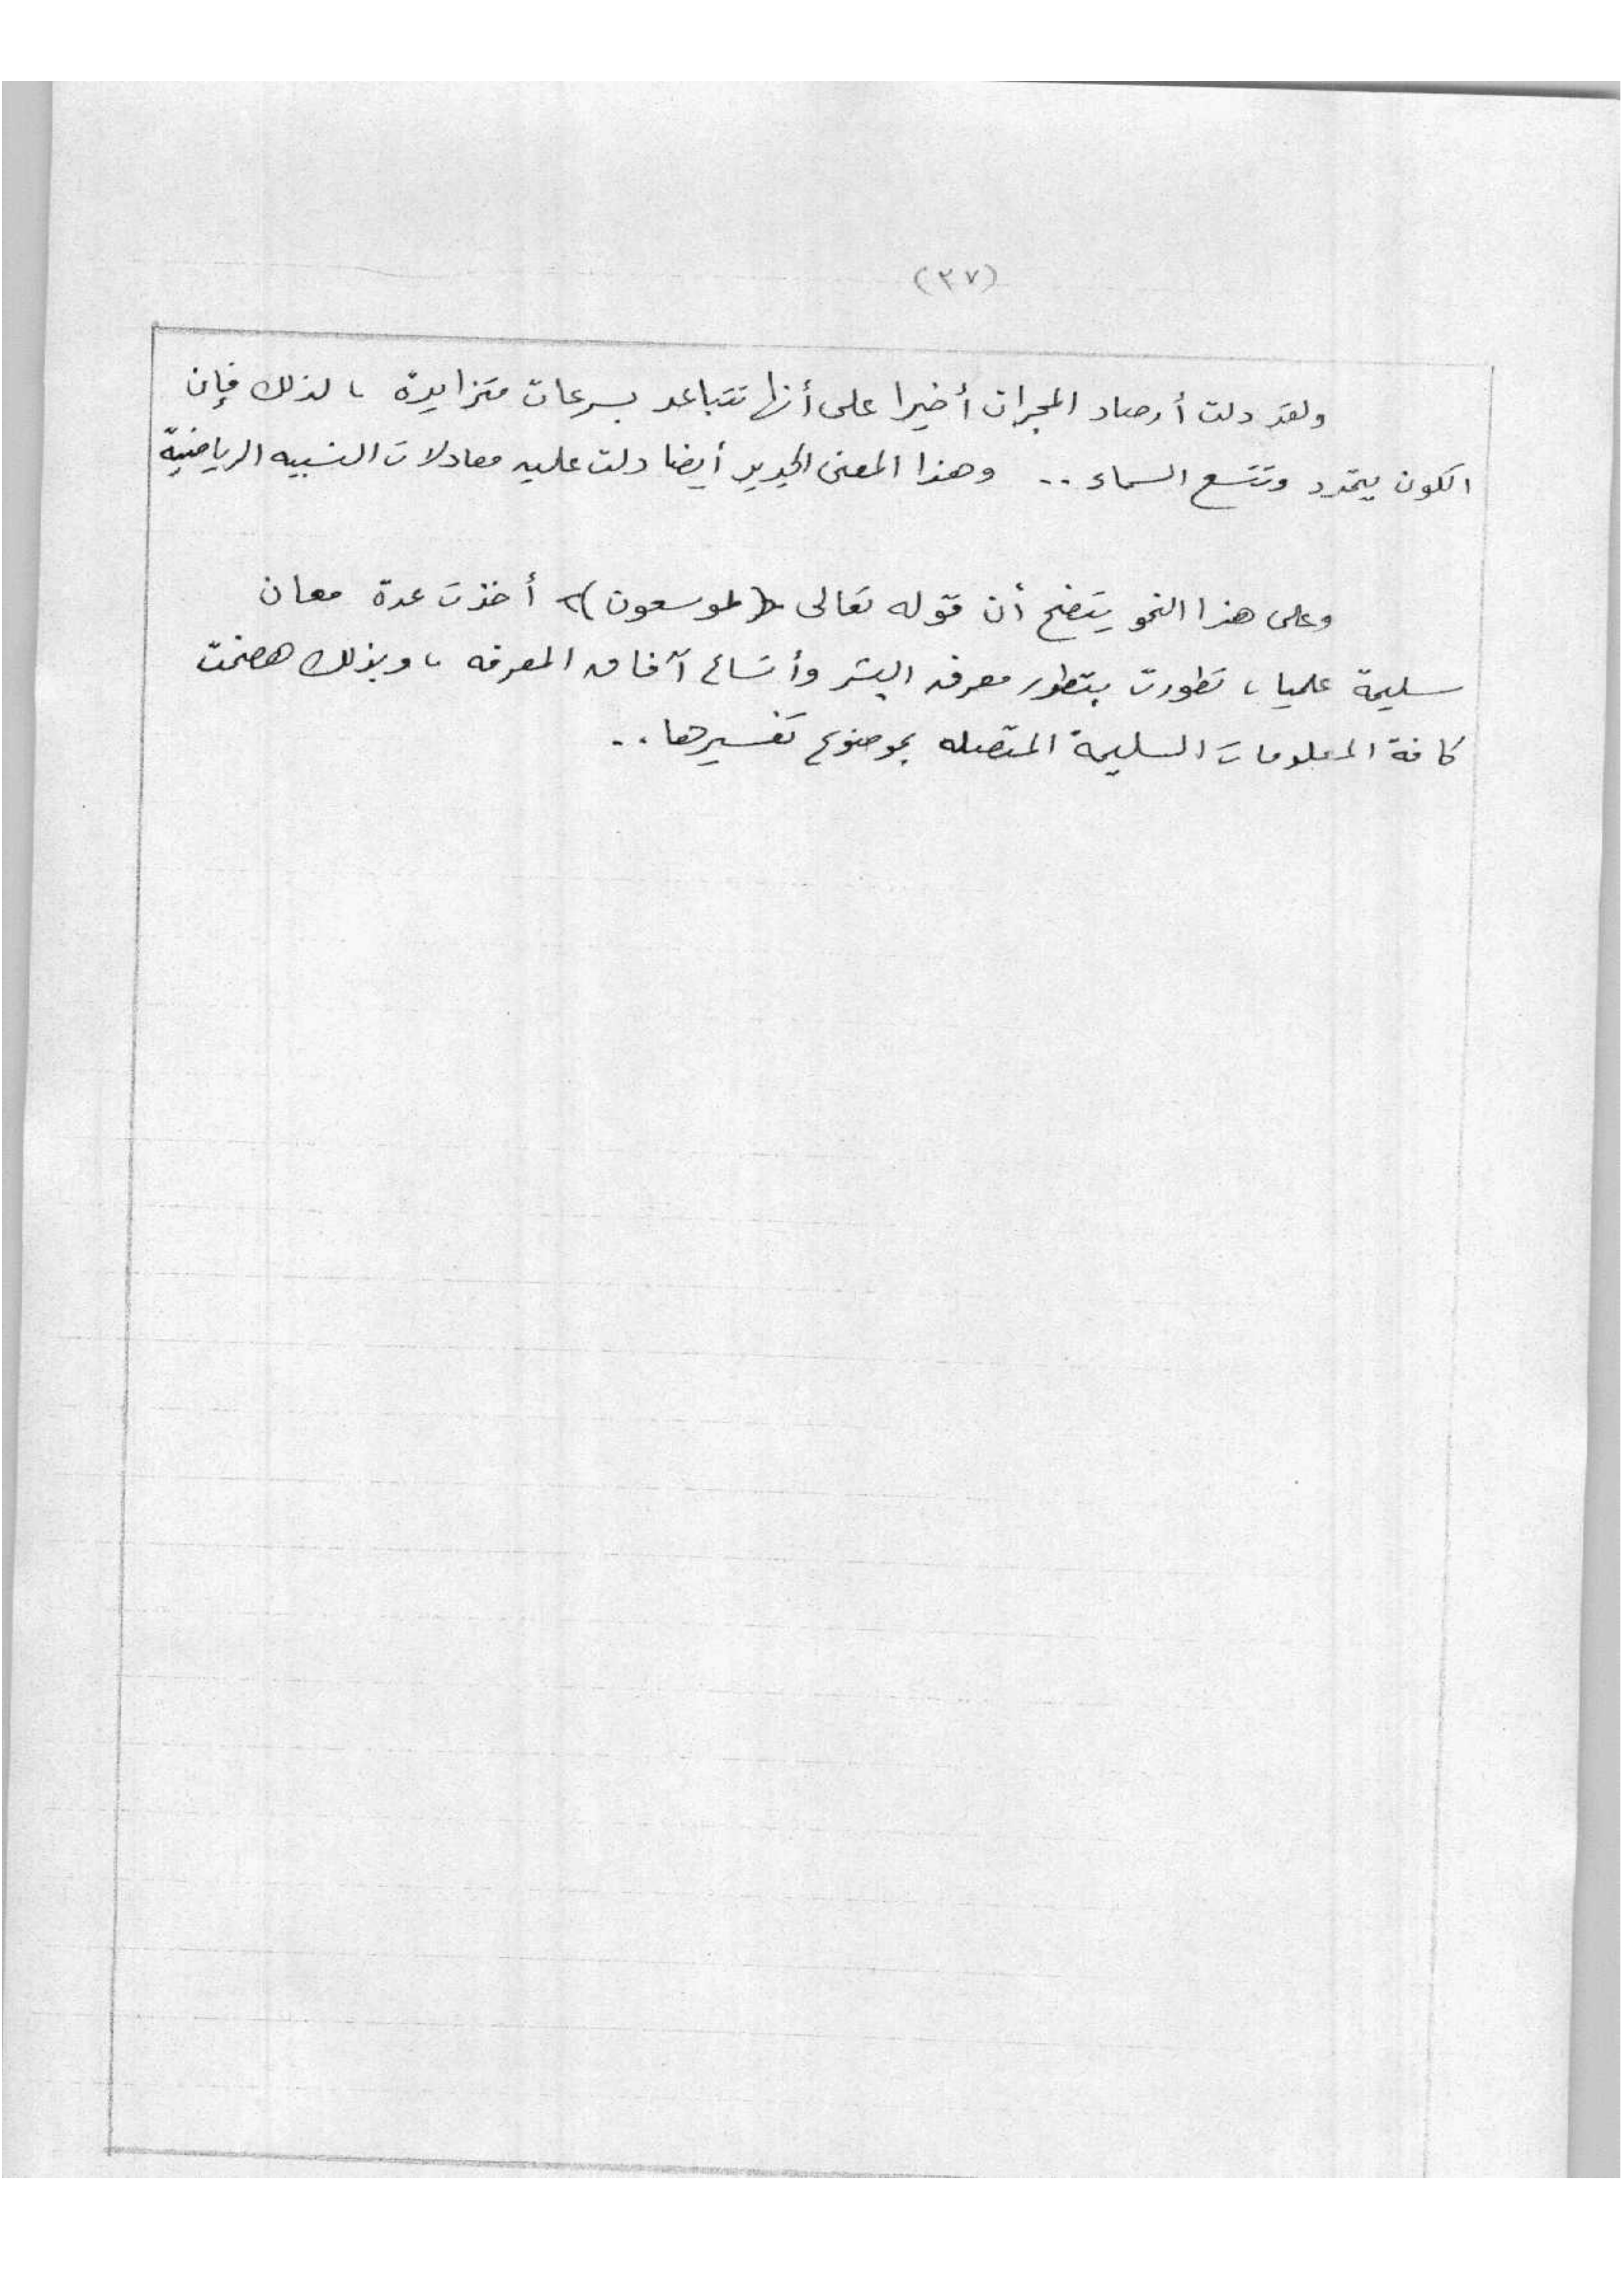 (٣٧)
ولقد دلت أرصاد المجرات أخيرا على أنها تتباعد بسرعات متزايدة ، لذلك فإن
الكون يتمدد وتتسع السماء .. وهذا المعنى الجديد أيضا دلت عليه معادلات النسبيه الرياضية
وعلى هذا النحو يتضح أن قوله تعالى ﴿لموسعون﴾ أخذت عدة معان
سليمة علميا ، تطورت بتطور معرفه البشر وأتساع آفاق المعرفه ، وبذلك هضمت
كافة المعلومات السليمة المتصله بموضوع تفسيرها ..